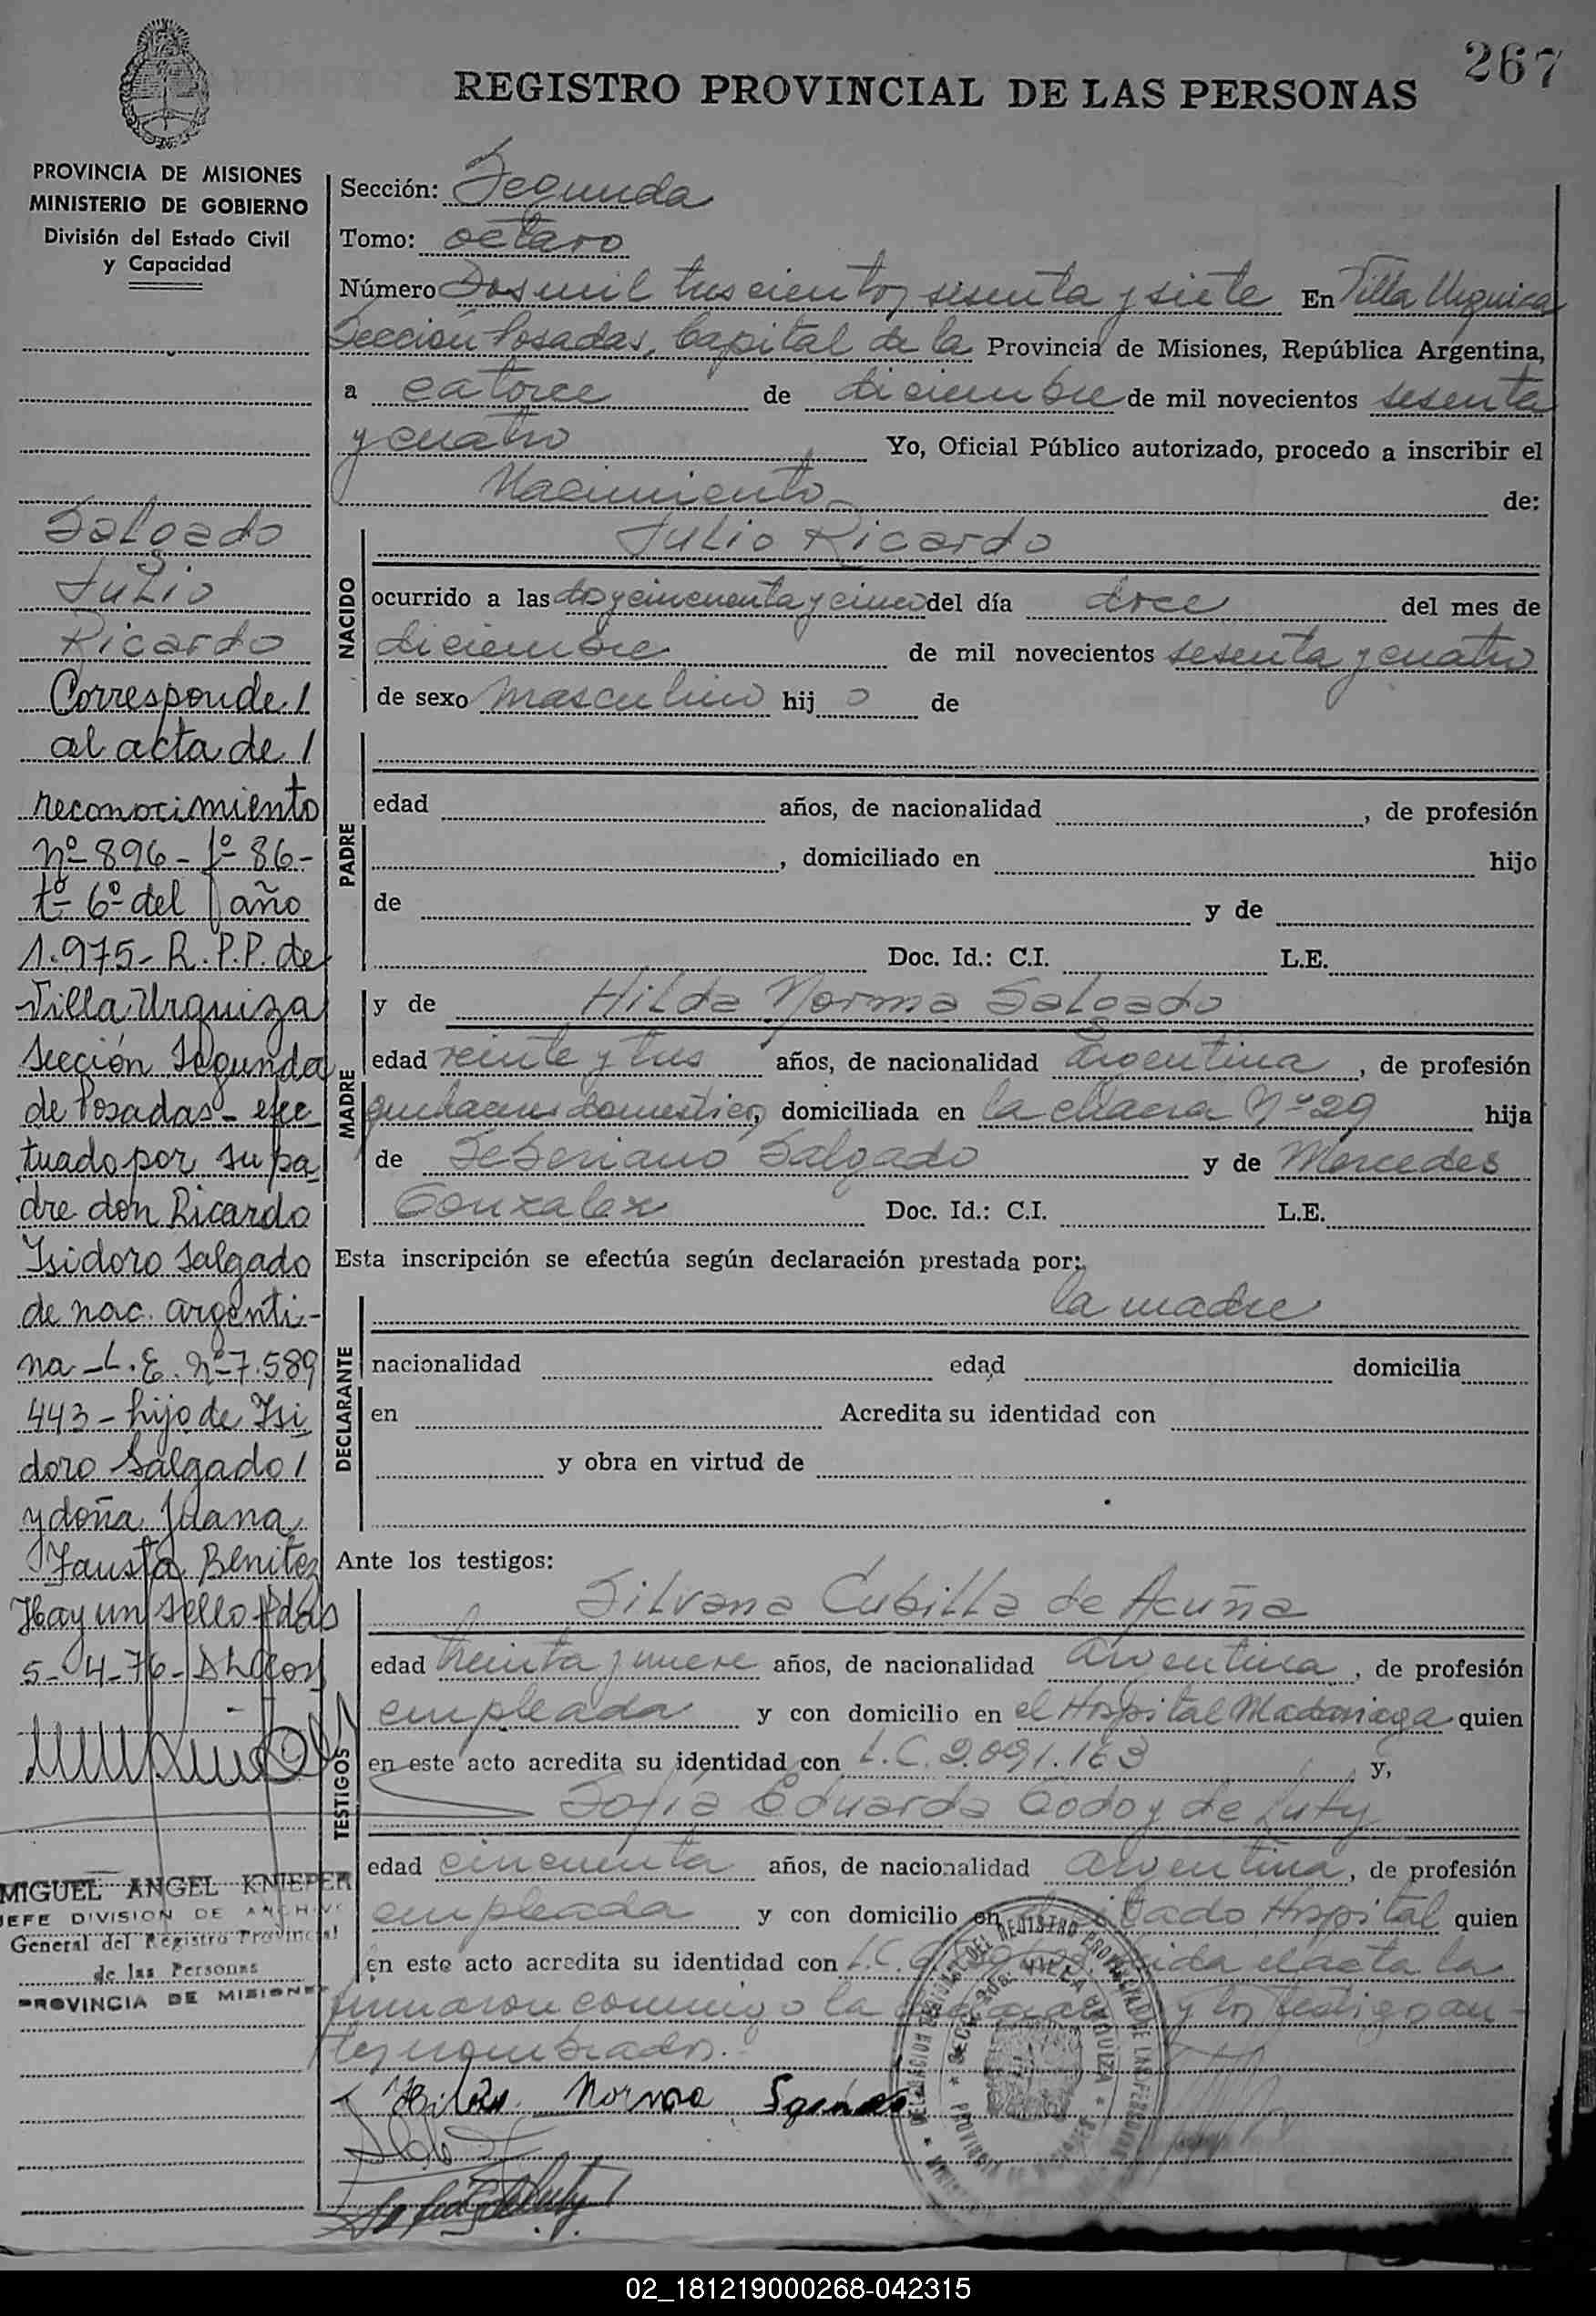 267
REGISTRO PROVINCIAL DE LAS PERSONAS
PROVINCIA DE MISIONES
MINISTERIO DE GOBIERNO
División del Estado Civil
y Capacidad
Salgado
Julio
Ricardo
Corresponde/
al acta de/
reconocimiento
nº 896 - fº 86-
tº 6º del año
1.975- R.P.P. de
Villa Urquiza
Sección Segunda
de Posadas - efec
tuado por su pa
dre don Ricardo
Isidoro Salgado
de nac. argenti-
na - L.E. Nº 7.589
443 - hijo de Isi
doro Salgado/
y doña Juana
Fausta Benitez
Hay un sello Pdas
5-4-76-
MIGUEL ANGEL KNIEPER
JEFE DIVISION DE ARCHIVO
General del Registro Provincial
de las Personas
PROVINCIA DE MISIONES
Sección: Segunda
Tomo: octavo
Número Dos mil trescientos sesenta y siete En Villa Urquiza
Sección Posadas, Capital de la Provincia de Misiones, República Argentina,
a catorce de diciembre de mil novecientos sesenta
y cuatro Yo, Oficial Público autorizado, procedo a inscribir el
Nacimiento de:
NACIDO
Julio Ricardo
ocurrido a las dos y cincuenta y cinco del día doce del mes de
diciembre de mil novecientos sesenta y cuatro
de sexo masculino hij o de
PADRE
edad años, de nacionalidad , de profesión
, domiciliado en hijo
de y de
Doc. Id.: C.I. L.E.
MADRE
y de Hilda Norma Salgado
edad veinte y tres años, de nacionalidad argentina, de profesión
quehaceres domesticos, domiciliada en la chacra Nº 29 hija
de Seberiano Salgado y de Mercedes
Gonzalez Doc. Id.: C.I. L.E.
Esta inscripción se efectúa según declaración prestada por:
DECLARANTE
la madre
nacionalidad edad domicilia
en Acredita su identidad con
y obra en virtud de
Ante los testigos:
TESTIGOS
Silvana Cubilla de Acuña
edad treinta y nueve años, de nacionalidad argentina, de profesión
empleada y con domicilio en el Hospital Madariaga quien
en este acto acredita su identidad con L.C. 2.091.163 y,
Sofia Eduarda Godoy de Luty
edad cincuenta años, de nacionalidad argentina, de profesión
empleada y con domicilio en citado Hospital quien
en este acto acredita su identidad con L.C. leida el acta la
firmaron conmigo la y los testigos an-
tes nombrados.
Hilda Norma
02_181219000268-042315